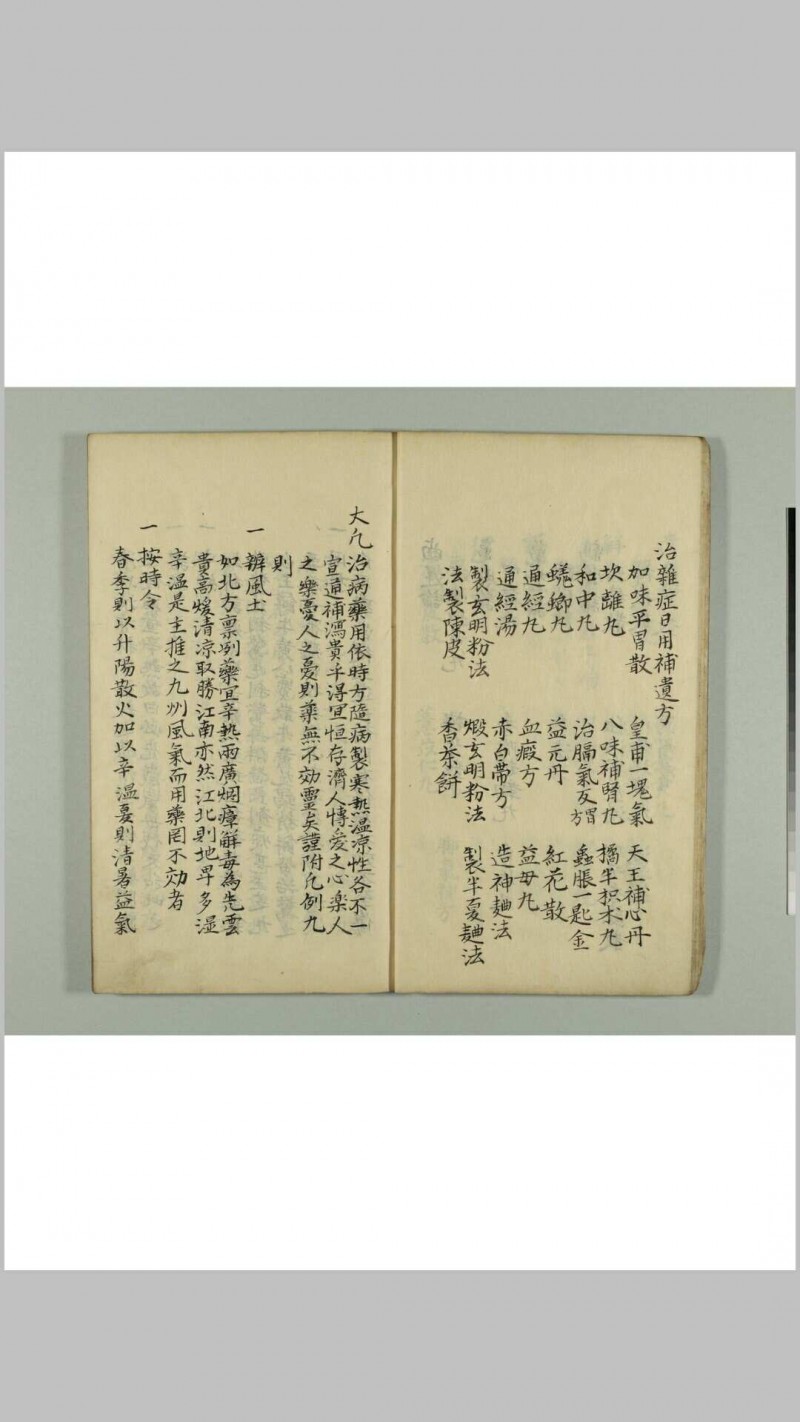 治雜症日用補遺方
加味平胃散 皇甫一塊氣 天王補心丹
坎離丸 八味補腎丸 橘半枳术丸
和中丸 治膈氣反胃方 蠱脹一匙金
蜣螂丸 益元丹 紅花散
通經丸 血瘕方 益母丸
通經湯 赤白帶方 造神麯法
製玄明粉法 煅玄明粉法 製半夏麯法
法製陳皮 香茶餅
大凢治病藥用依時方隨病製寒熱温凉性各不一
宣通補瀉貴乎得宜恒存濟人博愛之心楽人
之樂憂人之憂則藥無不効靈矣謹附凢例九
則
一 辨風土
如北方禀冽藥宜辛熱兩廣烟瘴解毒為先雲
貴高煖清凉取勝江南亦然江北則地卑多濕
辛温是主推之九州風氣而用藥罔不効者
一 按時令
春季則以升陽散火加以辛温夏則清暑益氣